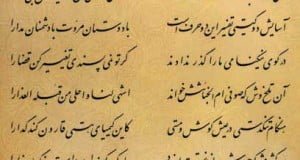 آسایش دو گیتی تفسیر این دو حرف است با دوستان مروت با دشمنان مدارا
در کوی نیکنامی ما را گذر ندادند گر تو نمی پسندی تغییر کن قضا را
آن تلخ وش که صوفی ام الخبائثش خواند اشهی لنا و احلی من قبلة العذارا
هنگام تنگدستی در عیش کوش و مستی کاین کیمیای هستی قارون کند گدا را